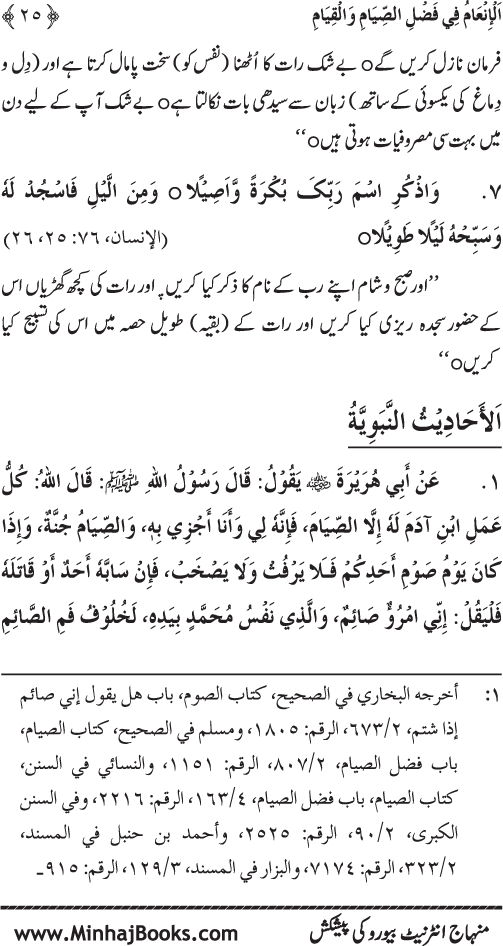 اَلْإِنْعَامُ فِي فَضْلِ الصِّيَامِ وَالْقِيَامِ ﴿۲۵﴾
فرمان نازل کریں گےo بے شک رات کا اُٹھنا (نفس کو) سخت پامال کرتا ہے اور (دِل و
دِماغ کی یکسوئی کے ساتھ) زبان سے سیدھی بات نکالتا ہےo بے شک آپ کے لیے دن
میں بہت سی مصروفیات ہوتی ہیںo‘‘
۷. وَاذْکُرِ اسْمَ رَبِّکَ بُکْرَةً وَّاَصِيْلًاo وَمِنَ الَّيْلِ فَاسْجُدْ لَهٗ
وَسَبِّحْهُ لَيْلًا طَوِيْلًاo (الإنسان، ۷۶: ۲۵، ۲۶)
’’اور صبح و شام اپنے رب کے نام کا ذکر کیا کریںo اور رات کی کچھ گھڑیاں اس
کے حضور سجدہ ریزی کیا کریں اور رات کے (بقیہ) طویل حصہ میں اس کی تسبیح کیا
کریںo‘‘
اَلْأَحَادِيْثُ النَّبَوِيَّةُ
۱. عَنْ أَبِي هُرَيْرَةَ رضی اللہ عنہ يَقُوْلُ: قَالَ رَسُوْلُ اللهِ ﷺ: قَالَ اللهُ: کُلُّ
عَمَلِ ابْنِ آدَمَ لَهٗ إِلَّا الصِّيَامَ، فَإِنَّهٗ لِي وَأَنَا أَجْزِي بِهٖ، وَالصِّيَامُ جُنَّةٌ، وَإِذَا
کَانَ يَوْمُ صَوْمِ أَحَدِکُمْ فَـلَا يَرْفُثْ وَلَا يَصْخَبْ، فَإِنْ سَابَّهٗ أَحَدٌ أَوْ قَاتَلَهٗ
فَلْيَقُلْ: إِنِّي امْرُؤٌ صَائِمٌ، وَالَّذِي نَفْسُ مُحَمَّدٍ بِيَدِهٖ، لَخُلُوْفُ فَمِ الصَّائِمِ
۱: أخرجه البخاري في الصحيح، کتاب الصوم، باب هل يقول إني صائم
إذا شتم، ۲/۶۷۳، الرقم: ۱۸۰۵، ومسلم في الصحيح، کتاب الصيام،
باب فضل الصيام، ۲/۸۰۷، الرقم: ۱۱۵۱، والنسائي في السنن،
کتاب الصيام، باب فضل الصيام، ۴/۱۶۳، الرقم: ۲۲۱۶، وفي السنن
الکبرى، ۲/۹۰، الرقم: ۲۵۲۵، وأحمد بن حنبل في المسند،
۲/۳۲۳، الرقم: ۷۱۷۴، والبزار في المسند، ۳/۱۲۹، الرقم: ۹۱۵۔
منہاج انٹرنیٹ بیورو کی پیشکش www.MinhajBooks.com